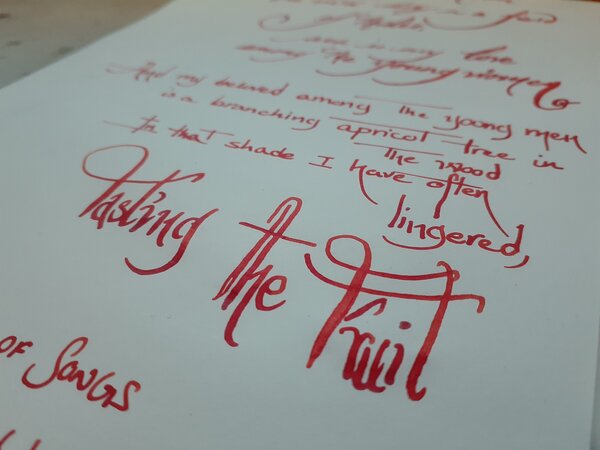 are in my love
among the young women
And my beloved among the young men
is a branching apricot tree in
the wood
In that shade I have often
lingered,
Tasting the Fruit
OF SONGS